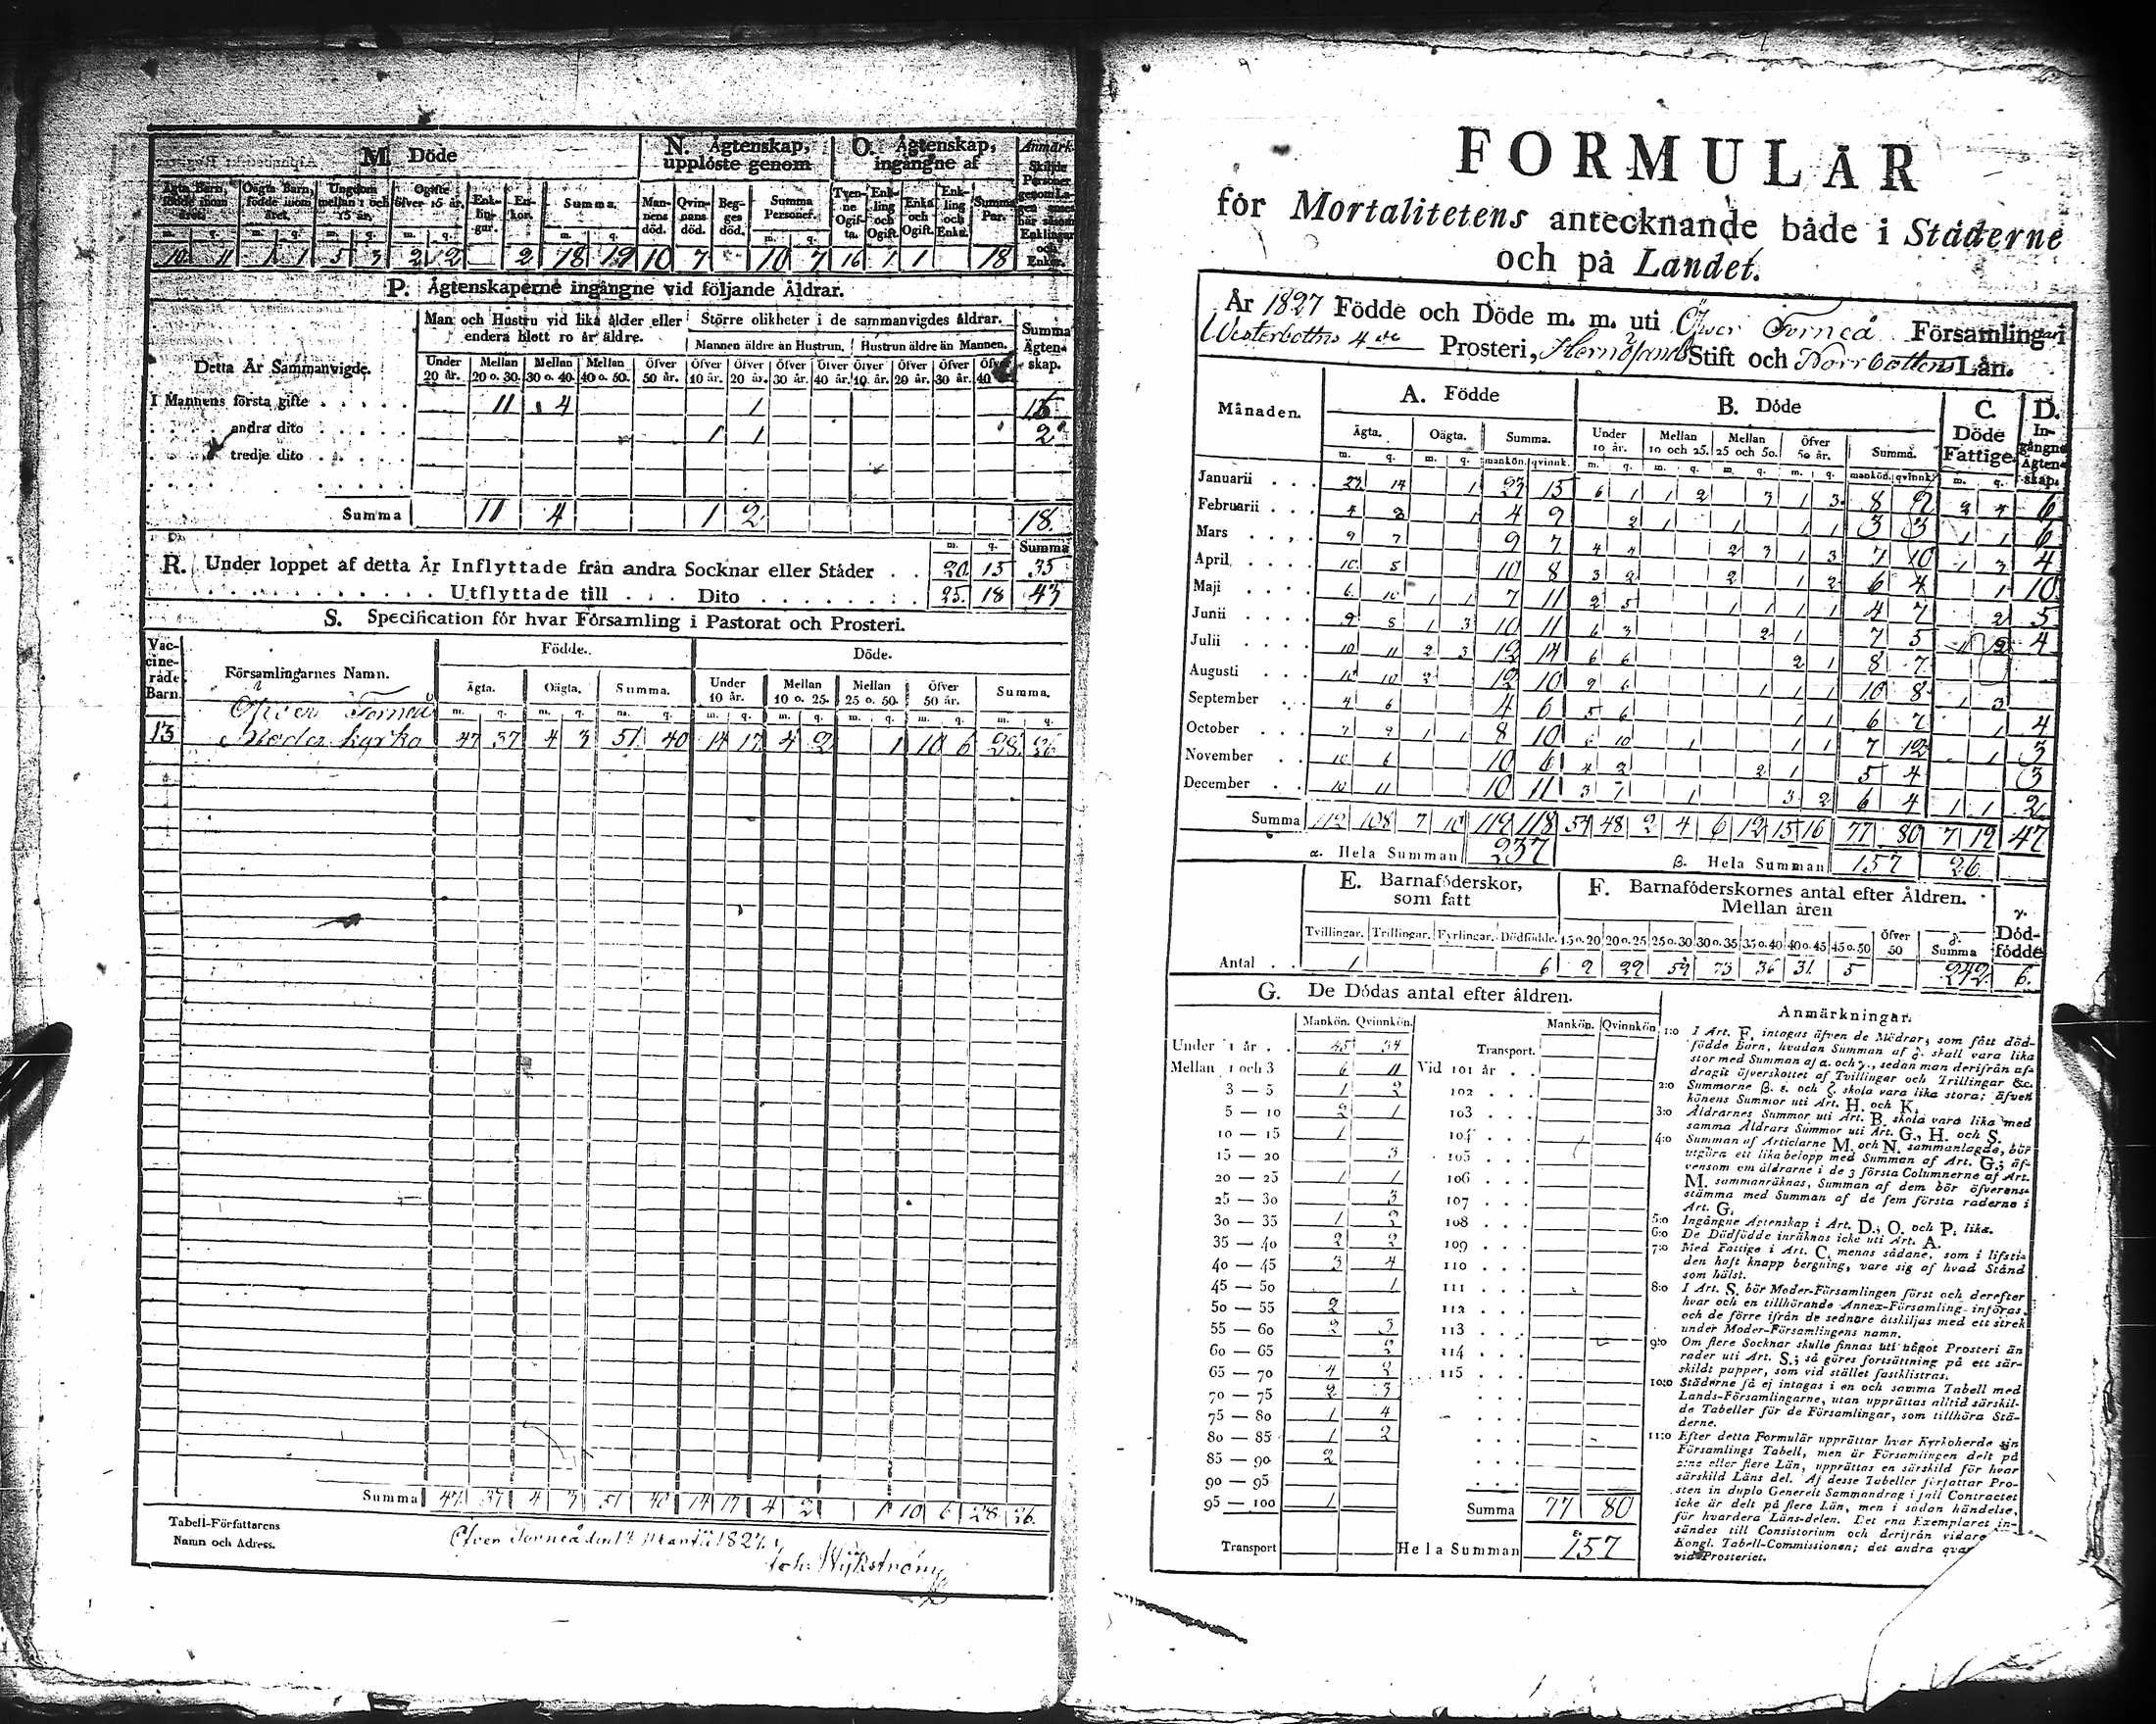 M. Döde
N. Ägtenskap, upplöste genom
O. Ägtenskap, ingångne af
Ägta Barn, födde inom året.
Oägta Barn, födde inom året.
Ungdom mellan 1 och 15 år.
Ogifte öfver 15 år.
Enk- lin- gar.
En- kor.
Summa.
Man- nens död.
Qvin- nans död.
Beg- ges död.
Summa Personer.
Tven- ne Ogif- ta.
Enk- ling och Ogift.
Enka och Ogift.
Enk- ling och Enka.
Summa Par.
10 11 1 1 5 3 2 2 2 18 19 10 7 10 7 16 1 1 18
P. Ägtenskaperne ingångne vid följande Åldrar.
Detta År Sammanvigde.
Man och Hustru vid lika ålder eller endera blott 10 år äldre.
Större olikheter i de sammanvigdes åldrar.
Mannen äldre än Hustrun.
Hustrun äldre än Mannen.
Summa Ägten- skap.
Under 20 år. Mellan 20 o. 30. Mellan 30 o. 40. Mellan 40 o. 50. Öfver 50 år. Öfver 10 år. Öfver 20 år. Öfver 30 år. Öfver 40 år. Öfver 10 år. Öfver 20 år. Öfver 30 år. Öfver 40
I Mannens första gifte 11 4 1
andra dito 1 1 2
tredje dito
Summa 11 4 1 2 18.
m. q. Summa
R. Under loppet af detta År Inflyttade från andra Socknar eller Städer 20. 15 35
Utflyttade till Dito 25. 18 43
S. Specification för hvar Församling i Pastorat och Prosteri.
Vac- cine- rade Barn.
Församlingarnes Namn.
Födde.
Döde.
Ägta. Oägta. Summa. Under 10 år. Mellan 10 o. 25. Mellan 25 o. 50. Öfver 50 år. Summa.
m. q. m. q. m. q. m. q. m. q. m. q. m. q. m. q.
Öfver Torneå
13 Moder kyrka 47 37 4 3 51 40 14 17 4 2 1 10 6 28 26
Summa 47. 37 4 3 51 40 14 17 4 2 1 10 6 28 26.
Tabell-Författarens Namn och Adress.
Joh: Wykström
FORMULÄR
för Mortalitetens antecknande både i Städerne
och på Landet.
År 1827 Födde och Döde m. m. uti Öfver Torneå Församling
Westerbottns 4de Prosteri, Hernösands Stift och Norrbottens Län.
Månaden.
A. Födde
B. Döde
C. Döde Fattige.
D. In- gångne Ägten- skap.
Ägta. Oägta. Summa. Under 10 år. Mellan 10 och 25. Mellan 25 och 50. Öfver 50 år. Summa.
m. q. m. q. mankön. qvinnk. m. q. m. q. m. q. m. q. mankön. qvinnk. m. q.
Januarii 14 1 15 6 1 1 2 3 1 3 8 9 6
Februarii 1 4 9 2 1 1 1 1 3 3 1 1 6
Mars 9 7 9 7 4 4 2 3 1 3 7 10 1 4
April 10 10 8 3 2 2 1 2 6 4 1 10
Maji 6 10 1 1 7 11 2 5 1 1 1 1 4 7 2 5
Junii 9 8 1 3 10 11 6 3 2 1 7 5 4
Julii 10 11 2 3 12 14 6 6 2 1 8 7
Augusti 10 10 2 12 10 9 6 1 1 1 10 8 1 3
September 4 6 4 6 5 6 1 1 6 7 1 4
October 7 9 1 1 8 10 6 10 1 1 1 7 12 1 3
November 10 6 10 6 4 2 2 1 5 4 3
December 10 11 10 11 3 1 1 3 2 6 4 1 1 2
Summa 112 108 7 10 119 118 54 48 2 4 6 12 15 16 77 80 7 19 47
α. Hela Summan 237
β. Hela Summan 157 26.
E. Barnaföderskor, som fått
F. Barnaföderskornes antal efter Åldren. Mellan åren
γ. Död- födde
Tvillingar. Trillingar. Fyrlingar. Dödfödde. 15 o. 20 20 o. 25 25 o. 30 30 o. 35 35 o. 40 40 o. 45 45 o. 50 Öfver 50 δ. Summa
Antal 1 6 36 31 5 242. 6.
G. De Dödas antal efter åldren.
Mankön. Qvinnkön. Mankön. Qvinnkön
Under 1 år 45 34 Transport.
Mellan 1 och 3 6 11 Vid 101 år
3 — 5 1 2 102
5 — 10 2 1 103
10 — 15 1 104
15 — 20 3 105
20 — 25 1 1 106
25 — 30 3 107
30 — 35 1 2 108
35 — 40 2 2 109
40 — 45 3 4 110
45 — 50 1 111
50 — 55 2 112
55 — 60 2 3 113
60 — 65 2 114
65 — 70 4 2 115
70 — 75 2 3
75 — 80 1 4
80 — 85 1 2
85 — 90 2
90 — 95
95 — 100 1 Summa 77 80
Transport Hela Summan 157
Anmärkningar.
1:0 I Art. F. intagas äfven de Mödrar, som fått död-
födde Barn, hvadan Summan af δ. skall vara lika
stor med Summan af α. och γ., sedan man derifrån af-
dragit öfverskottet af Tvillingar och Trillingar &c.
2:0 Summorne β. ε. och ζ. skola vara lika stora; äfven
könens Summor uti Art. H. och K.
3:0 Åldrarnes Summor uti Art. B. skola vara lika med
samma Åldrars Summor uti Art. G., H. och S.
4:0 Summan af Articlarne M. och N. sammanlagde, bör
utgöra ett lika belopp med Summan af Art. G.; äf-
vensom om åldrarne i de 3 första Columnerne af Art.
M. sammanräknas, Summan af dem bör öfverens-
stämma med Summan af de fem första raderne i
Art. G.
5:0 Ingångne Ägtenskap i Art. D., O. och P. lika.
6:0 De Dödfödde inräknas icke uti Art. A.
7:0 Med Fattige i Art. C. menas sådane, som i lifsti-
den haft knapp bergning, vare sig af hvad Stånd
som hälst.
8:0 I Art. S. bör Moder-Församlingen först och derefter
hvar och en tillhörande Annex-Församling införas,
och de förre ifrån de sednare åtskiljas med ett strek
under Moder-Församlingens namn.
9:0 Om flere Socknar skulle finnas uti något Prosteri än
rader uti Art. S.; så göres fortsättning på ett sär-
skildt papper, som vid stället fastklistras.
10:0 Städerne få ej intagas i en och samma Tabell med
Lands-Församlingarne, utan upprättas alltid särskil-
de Tabeller för de Församlingar, som tillhöra Stä-
derne.
11:0 Efter detta Formulär upprättar hvar Kyrkoherde sin
Församlings Tabell, men är Församlingen delt på
tvne eller flere Län, upprättas en särskild för hvar
särskild Läns del. Af desse Tabeller författar Pro-
sten in duplo Generelt Sammandrag i fall Contractet
icke är delt på flere Län, men i sådan händelse,
för hvardera Läns-delen. Det ena Exemplaret in-
sändes till Consistorium och derifrån vidare
Kongl. Tabell-Commissionen; det andra
vid Prosteriet.